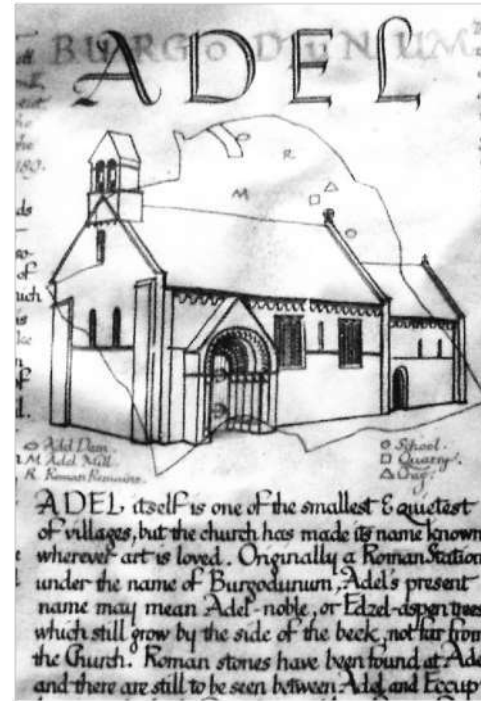 BURGODUNUM
ADEL
R
M
Adel Dam.
M Adel Mill.
R Roman Remains.
School.
Quarry.
Crag.
ADEL itself is one of the smallest & quietest
of villages, but the church has made its name known
wherever art is loved. Originally a Roman Station
under the name of Burgodunum, Adel's present
name may mean Adel-noble, or Edzel-aspen trees
which still grow by the side of the beck, not far from
the Church. Roman stones have been found at Ade
and there are still to be seen between Adel and Eccup